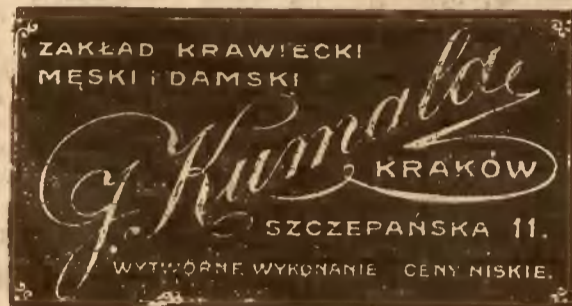 ZAKŁAD KRAWIECKI
MĘSKI i DAMSKI
J. Kumala
KRAKÓW
SZCZEPAŃSKA 11.
WYTWORNE WYKONANIE CENY NISKIE.